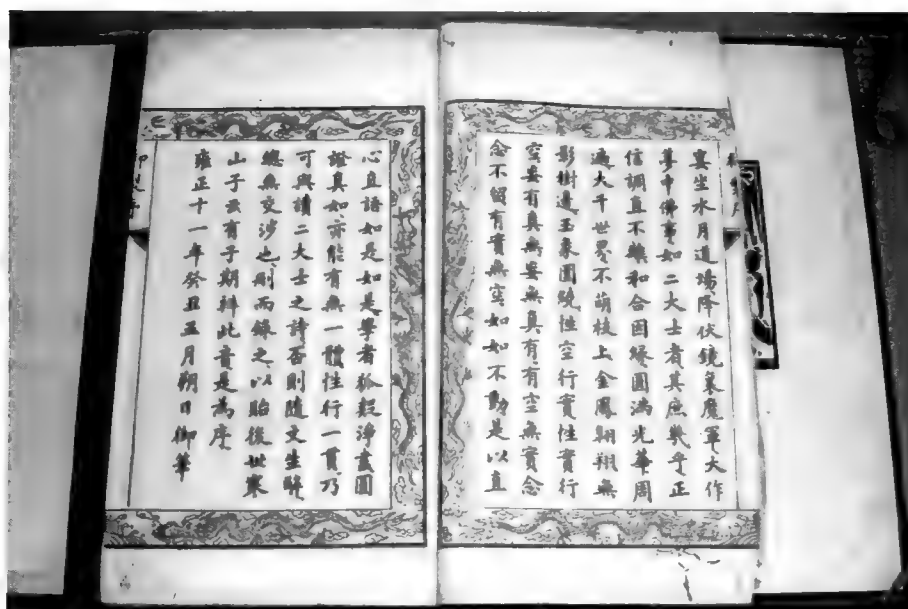 宴坐水月道場降伏鏡裏魔軍大作
夢中佛事如二大士者其庶幾乎正
信調直不離和合因緣圓滿光華周
遍大千世界不萌枝上金鳳翱翔無
影樹邊玉象圍繞性空行實性實行
空妄有真無妄無真有有空無實念
念不留有實無空如如不動是以直
心直語如是如是學者狐疑淨盡圓
證真如亦能有無一體性行一貫乃
可與讀二大士之詩否則隨文生解
總無交涉也刪而錄之以貽後世寒
山子云有子期辨此音是為序
雍正十一年癸丑五月朔日御筆